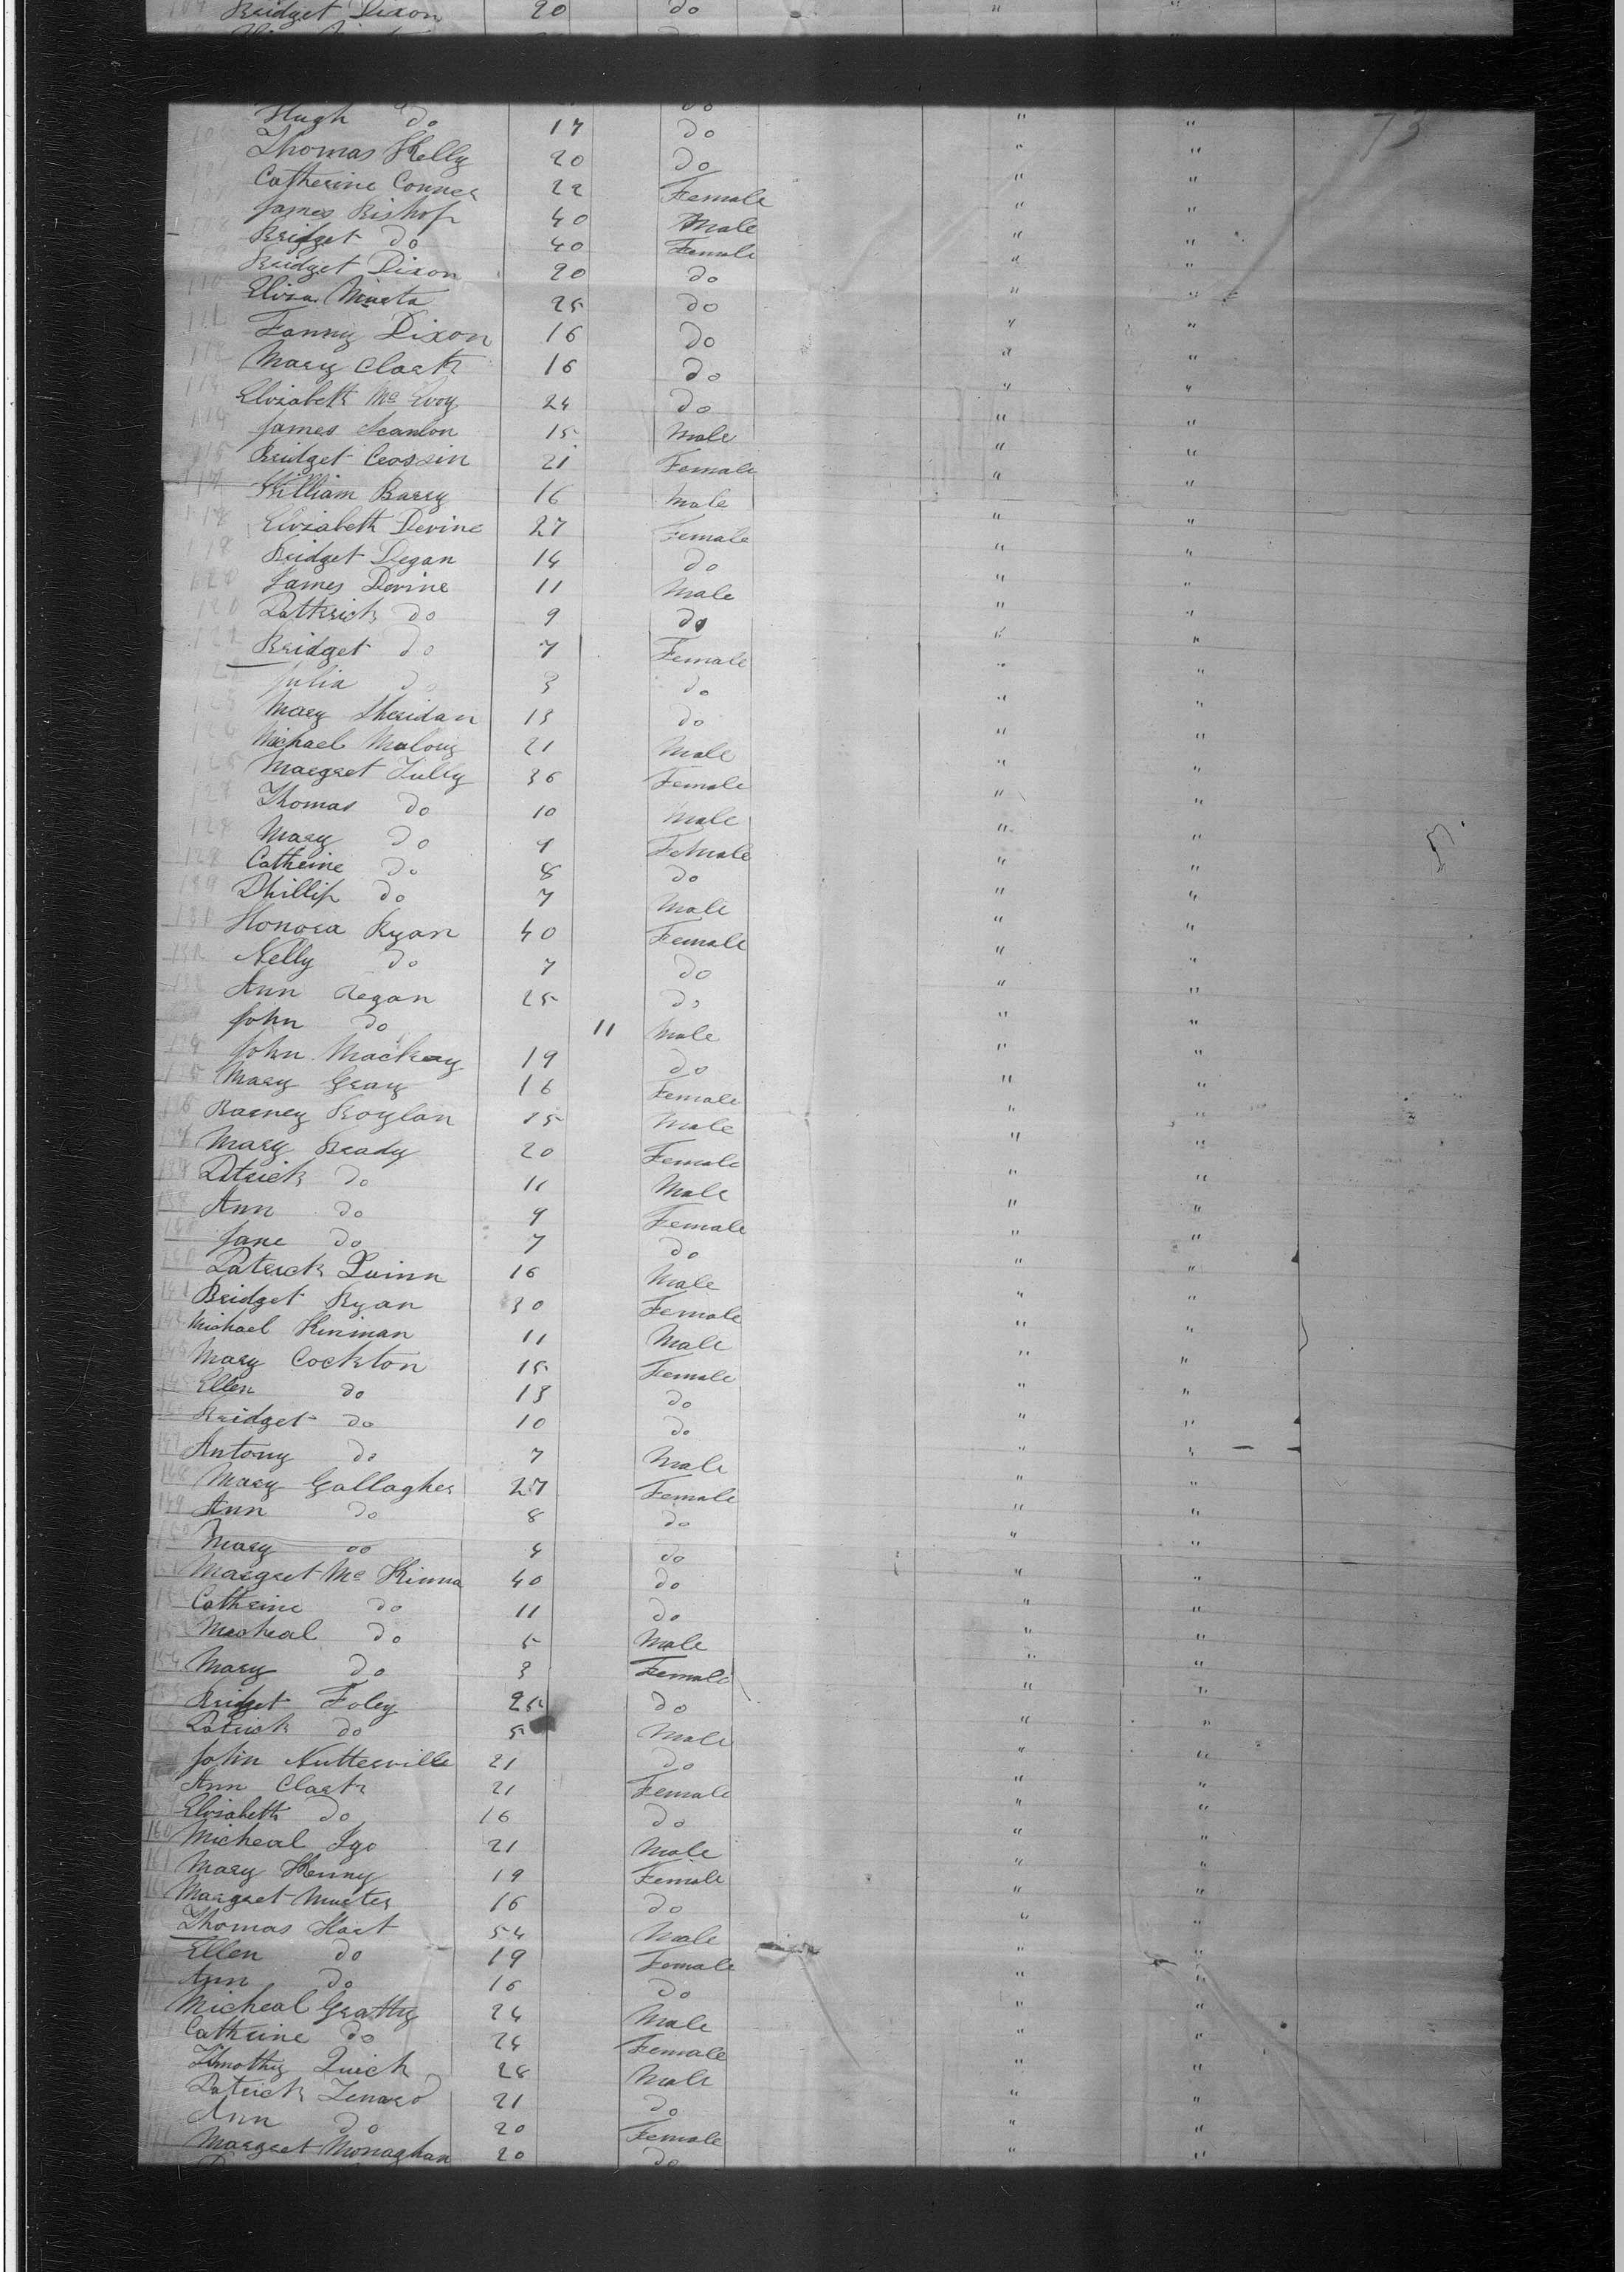 Bridget Dixon 20 do "
Hugh do 17 do " "
Thomas Kelly 20 do " "
Catherine Conner 22 Female " "
James Bishop 40 Male " "
Bridget do 40 Female " "
Bridget Dixon 20 do " "
Eliza 25 do " "
Fanny Dixon 16 do " "
Mary Clark 16 do " "
Elizabeth Mc Evoy 24 do " "
James Scanlon 15 Male " "
Bridget Crossin 21 Female " "
William Barry 16 Male " "
Elizabeth Devine 27 Female " "
Bridget Degan 14 do " "
James Devine 11 Male " "
Pattrick do 9 do " "
Bridget do 7 Female " "
Julia do 3 do " "
Mary Sheridan 13 do " "
Michael Malony 21 Male " "
Margret Tully 36 Female " "
Thomas do 10 Male " "
Mary do 9 Female " "
Catherine do 8 do " "
Phillip do 7 Male " "
Honora Ryan 40 Female " "
Nelly do 7 do " "
Ann Regan 25 do " "
John do 11 Male " "
John Mackay 19 do " "
Mary Gray 16 Female " "
Barney Boylan 15 Male " "
Mary Brady 20 Female " "
Patrick do 11 Male " "
Ann do 9 Female " "
Jane do 7 do " "
Patrick Quinn 16 Male " "
141 Bridget Ryan 30 Female " "
Michael Kinman 11 Male " "
Mary Cockton 15 Female " "
Ellen do 13 do " "
Bridget do 10 do " "
147 Antony do 7 Male " "
148 Mary Gallagher 27 Female " "
149 Ann do 8 do " "
150 Mary do 4 do " "
151 Margret Mc Kinna 40 do " "
Catherine do 11 do " "
153 Micheal do 5 Male " "
154 Mary do 3 Female " "
Bridget Foley 25 do " "
156 Patrick do 5 Male " "
John Nutterville 21 do " "
Ann Clark 21 Female " "
Elizabeth do 16 do " "
160 Micheal Igo 21 Male " "
161 Mary Kenny 19 Female " "
Margret 16 do " "
Thomas Hart 54 Male " "
Ellen do 19 Female " "
Ann do 16 do " "
Micheal Gratty 24 Male " "
Catherine do 24 Female " "
Timothy Quick 28 Male " "
Patrick Lenard 21 do " "
Ann do 20 Female " "
Margret Monaghan 20 do " "